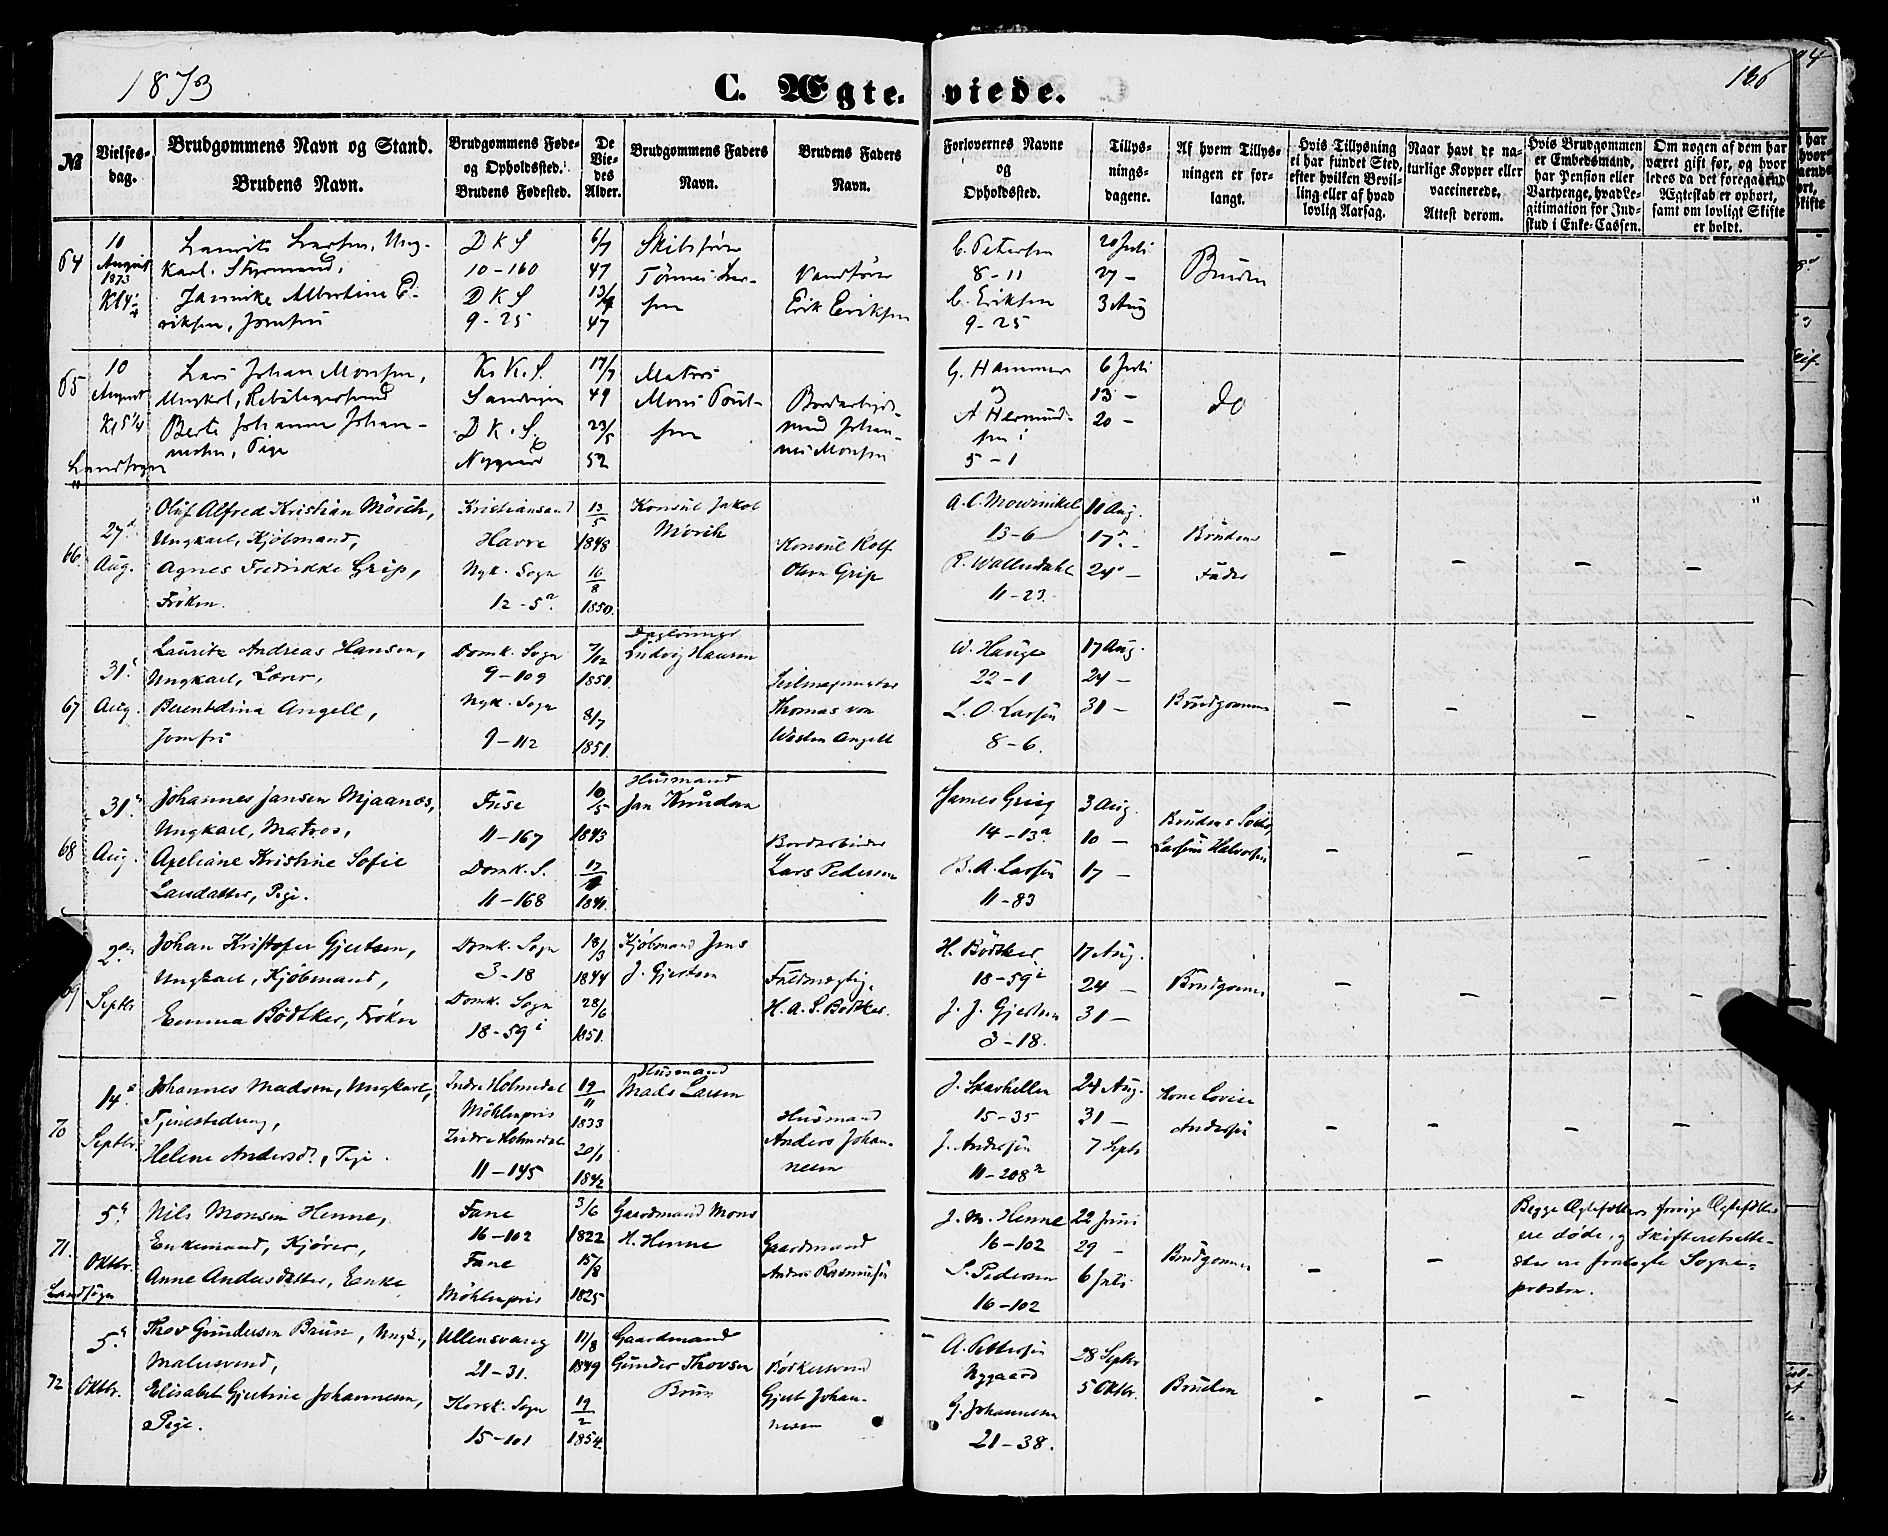 1873
C. Ægteviede.
186
№
Vielsesdag.
Brudgommens Navn og Stand.
Brudens Navn.
Brudgommens Føde-
og Opholdssted.
Brudens Fødested.
De
Vie-
des
Alder.
Brudgommens Faders
Navn.
Brudens Faders
Navn.
Forlovernes Navne
og
Opholdssted.
Tillys-
nings-
dagene.
Af hvem Tillys-
ningen er for-
langt.
Hvis Tillysning
ei har fundet Sted,
efter hvilken Bevil-
ling eller af hvad
lovlig Aarsag.
Naar havt de na-
turlige Kopper eller
vaccinerede.
Attest derom.
Hvis Brudgommen
er Embedsmand,
har Pension eller
Vartpenge, hvad Le-
gitimation for Ind-
skud i Enke-Cassen.
Om nogen af dem har
været gift før, og hvor-
ledes da det foregaaende
Ægteskab er ophørt,
samt om lovligt Skifte
er holdt.
64
10
August
1873
Laurits Larsen, Ung-
karl. Styrmand,
Jannike Albertine E-
riksen, Jomfru
D K S
10-160
D K S
9-25
6/7
47
47
Skibsfører
Tønnes Lar-
sen
Vandfører
Erik Eriksen
C. Petersen
8-11
C. Eriksen
9-25
20 Juli
27 -
3 Aug
Bruden
65
10
August
Kl 5 1/4
Landsogn
Lars Johan Monsen,
Ungkarl, Rebslagersvend
Berte Johanne Johan-
nesen, Pige
K. K. S.
Sandvigen
D K. S.
Nygaard
17/7
49
23/5
52
Matros
Mons Poul-
sen
Bordarbejds-
mand Johan-
nes Monsen
G. Hammer
og
A Hermund-
sen
5-1
6 Juli
13 -
20 -
do
66.
27d
Aug.
Oluf Alfred Kristian Mörch,
Ungkarl, Kjöbmand,
Agnes Fredrikke Grip,
Fröken.
Kristiansand
Havre
Nyk. Sogn
12-5a.
13/5
1848
16/8
1850.
Konsul Jakob
Mörch
Konsul Rolf
Olsen Grip
A. C. Mowinkel
13-6
R. Wallendahl
11-23.
10 Aug.
17d -
24d -
Brudens
Fader
- - - -
67
31d
Aug.
Lauritz Andreas Hansen,
Ungkarl, Lærer,
Berentdina Angell,
Jomfru
Domk. Sogn
9-109
Nyk. Sogn
9-112
7/12
1851.
8/7
1851.
Daglönner
Ludvig Hansen
Seilmagermester
Thomas von
Westen Angell
W. Hauge
22-1
L. O. Larsen
8-6.
17 Aug.
24 -
31 -
Brudgommen
- - - -
68
31d
Aug.
Johannes Jansen Mjaanæs,
Ungkarl, Matros,
Axeliane Kristine Sofie
Larsdatter, Pige.
Fuse
11-167
Domk. S.
11-168
10/5
1843
1841.
Husmand
Jan Knudsen
Bordarbeider
Lars Pedersen
James Grieg
14-13a
B. A. Larsen
11-83
3 Aug.
10 -
17 -
Brudens
Halvorsen
- - - -
69
2den
Septbr
Johan Kristofer Gjertsen,
Ungkarl, Kjöbmand,
Emma Bödtker, Fröken
Domk. Sogn
3-18
Domk. Sogn
18-59 i
18/3
1844
28/6
1851.
Kjöbmand Jens
J. Gjertsen
Fuldmægtig
H. A. S. Bödtker.
H. Bödtker
18-59 i
J. J. Gjertsen
3-18.
17 Aug.
24 -
31 -
Brudgommen
- - - -
70
14d
Septbr.
Johannes Madsen, Ungkarl,
Tjenestedreng,
Helene Andersd., Pige.
Indre Holmedal
Möhlenpris
Indre Holmedal
11-145
19/11
1833
20/1
1842
Husmand
Mads Larsen
Husmand
Anders Johan-
nesen
J. Skarhellen
15-35
J. Andersen
11-208a
24 Aug.
31 -
7 Septb
Kone Lovise
Andersen
- - - -
71.
5d
Oktbr.
Landsogn
Nils Monsen Henne,
Enkemand, Kjörer,
Anne Andersdatter, Enke
Fane
16-102
Fane
Möhlenpris
3/6
1822
15/8
1825
Gaardmand Mons
H. Henne
Gaardmand
Anders Rasmussen
J. M. Henne
16-102
S. Pedersen
16-102
22 Juni
29 -
6 Juli
Brudgommen
- -
Begge Ægtefolkes forrige Ægtefæller
ere döde, og Skifteretsatte-
ster ere forelagte Sogne-
præsten.
72
5d
Oktbr.
Thov Gundersen Brun, Ungk.,
Malersvend,
Elisabet Gjertine Johannesen,
Pige.
Ullensvang
21-31.
Korsk. Sogn
15-101
11/8
1849
19/2
1854.
Gaardmand
Gunder Thovsen
Brun
Bödkersvend
Gjert Johan-
nesen
A. Pettersen
Nygaard
G. Johannesen
21-38.
28 Septbr
5 Oktbr.
Bruden
- - - -